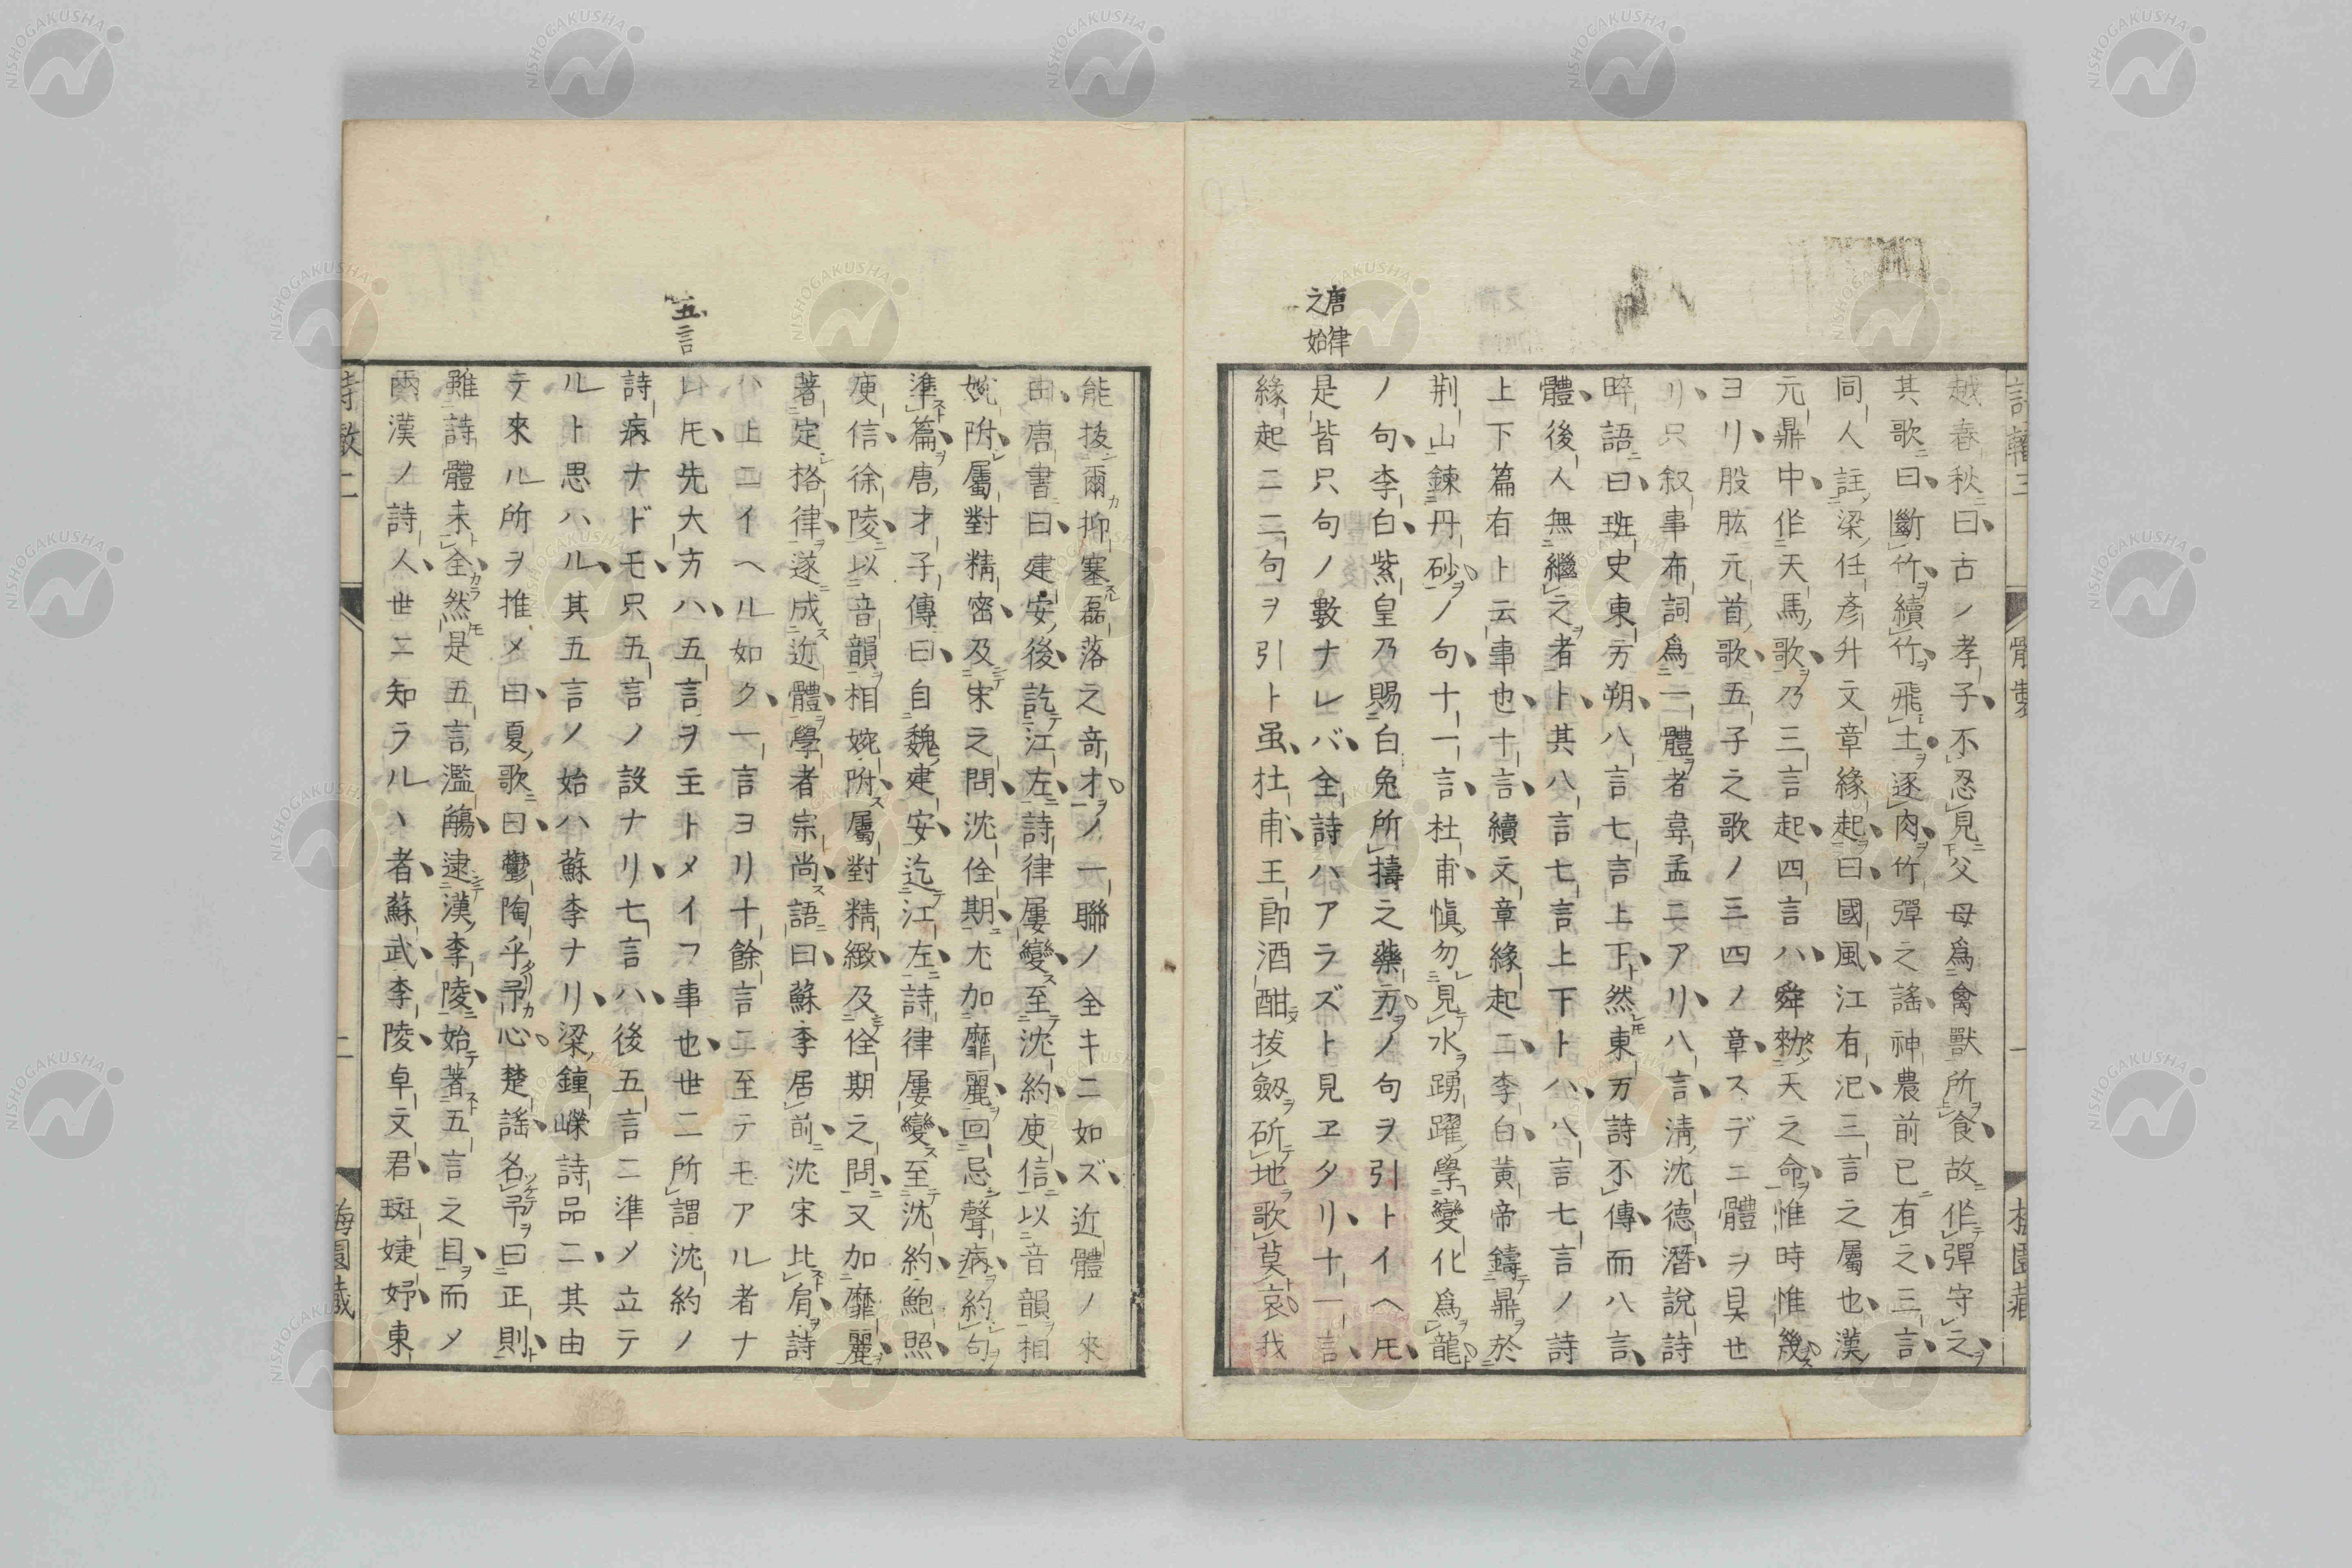 越春秋曰古ノ孝子不忍見父母爲禽獸所食故作彈守之
其歌曰斷竹續竹飛土逐肉竹彈之謠神農前已有之三言
同人註梁任彥升文章緣起曰國風江有汜三言之屬也漢
元鼎中作天馬歌乃三言起四言ハ舜勑天之命惟時惟幾
ヨリ股肱元首歌五子之歌ノ三四ノ章スデニ體ヲ具世
リ只叙事布詞爲一體者韋孟ニアリ八言淸沈德潛說詩
晬語曰班史東方朔八言七言上下然東方詩不傳而八言
體後人無繼之者ト其八言七言上下ト八八言七言ノ詩
上下篇有ト云事也十言續文章緣起ニ李白黃帝鑄鼎於
荆山鍊丹砂ノ句十一言杜甫愼勿見水踴躍學變化爲龍
ノ句李白紫皇乃賜白兔所擣之藥方ノ句ヲ引トイヘ𪜈
唐律
之始
是皆只句ノ數ナレバ全詩ハアラズト見ヱタリ十一言
緣起ニ二句ヲ引ト虽杜甫王郎酒酣拔劔斫地歌莫哀我
能拔爾抑塞磊落之竒才ノ一聯ノ全キニ如ズ近體ノ來
由唐書曰建安後訖江左詩律屢變至沈約庾信以音韻相
婉附屬對精密及宋之問沈佺期尤加靡麗回忌聲病約句
準篇唐才子傳曰自魏建安迄江左詩律屢變至沈約鮑照
庾信徐陵以音韻相婉附屬對精緻及佺期之問又加靡麗
著定格律遂成近體學者宗尚語曰蘇李居前沈宋比肩詩
ハ上ニイヘル如ク一言ヨリ十餘言ニ至テモアル者ナ
五言
レ𪜈先大方ハ五言ヲ主トメイフ事也世ニ所謂沈約ノ
詩病ナドモ只五言ノ設ナリ七言ハ後五言ニ準メ立テ
ルト思ハル其五言ノ始ハ蘇李ナリ梁鐘嶸詩品ニ其由
テ來ル所ヲ推メ曰夏歌曰鬱陶乎予心楚謠名予曰正則
雖詩體未全然是五言濫觴逮漢李陵始著五言之目而メ
兩漢ノ詩人世ニ知ラルヽ者蘇武李陵卓文君班婕妤東